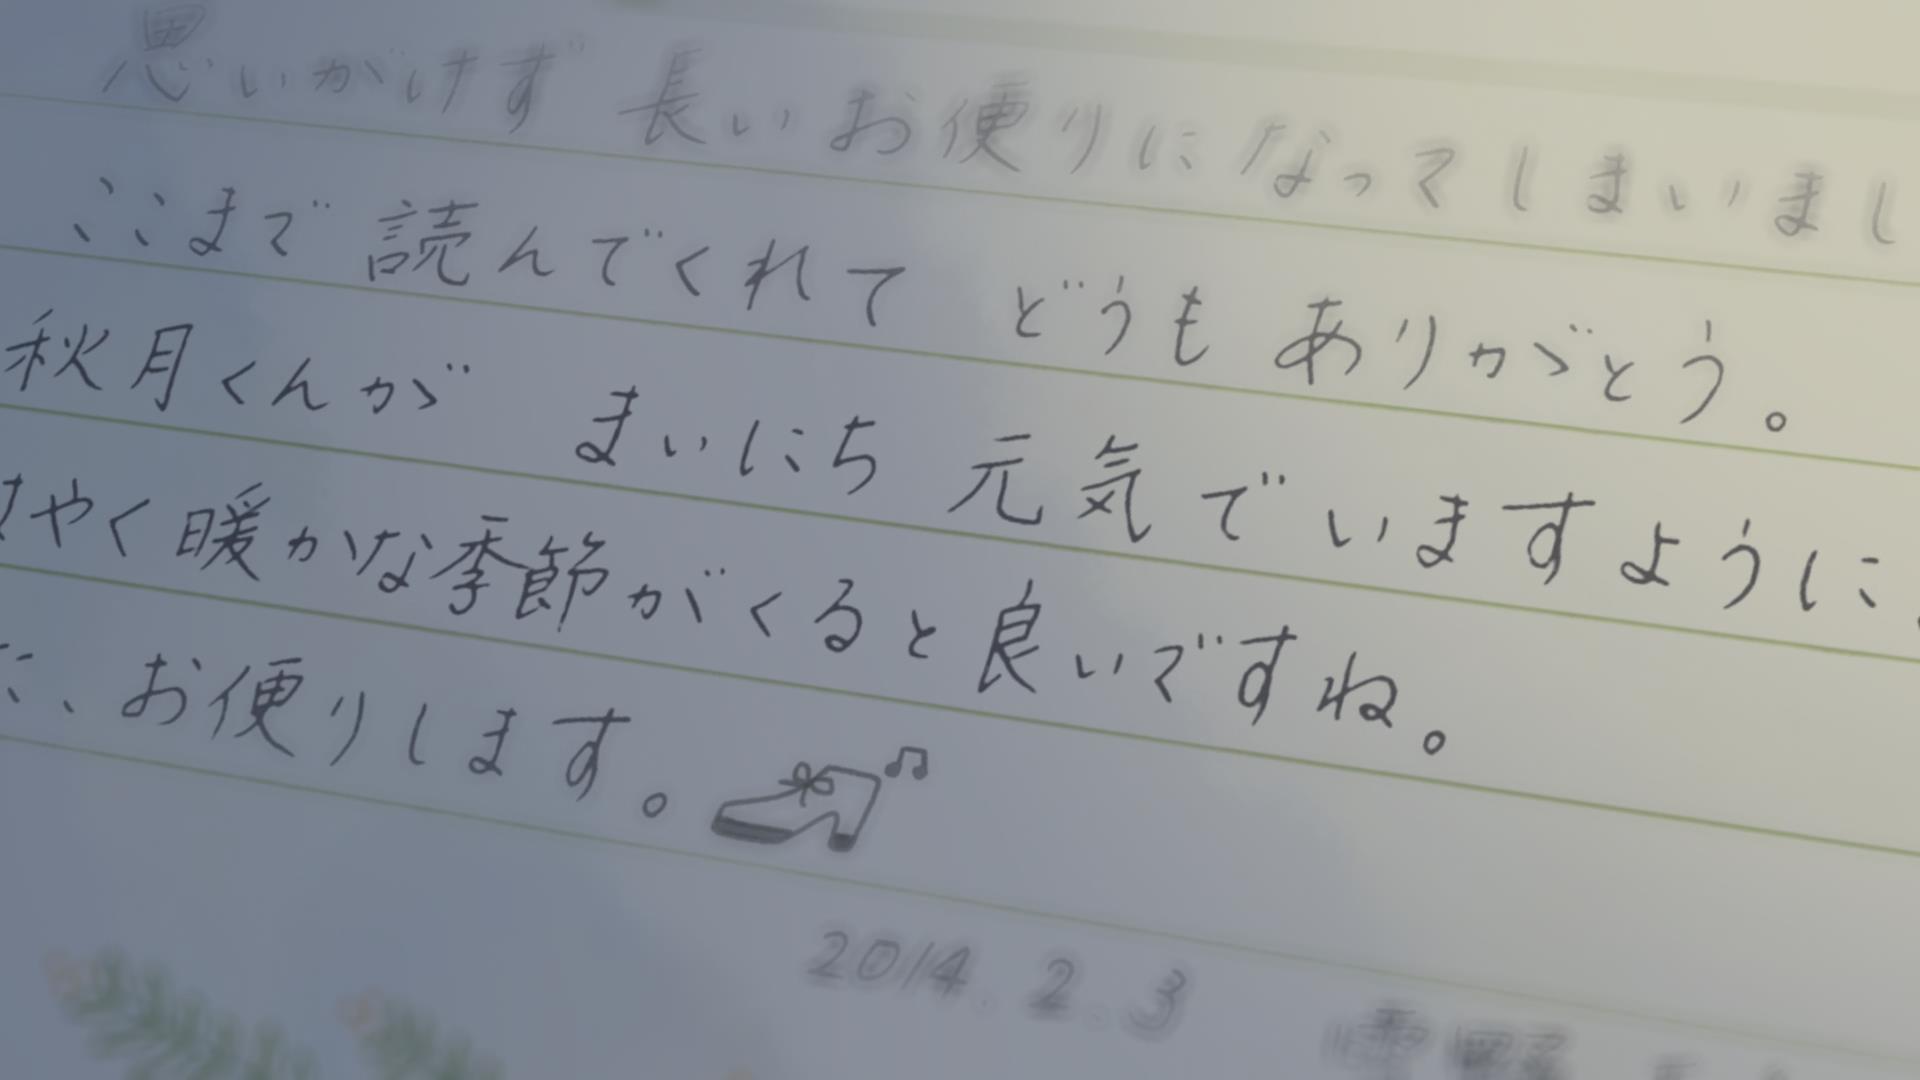 思いがけず 長いお便りになってしまいまし
ここまで 読んでくれて どうも ありがとう。
秋月くんが まいにち 元気でいますように。
はやく暖かな季節がくると良いですね。
に、お便りします。
2014.2.3